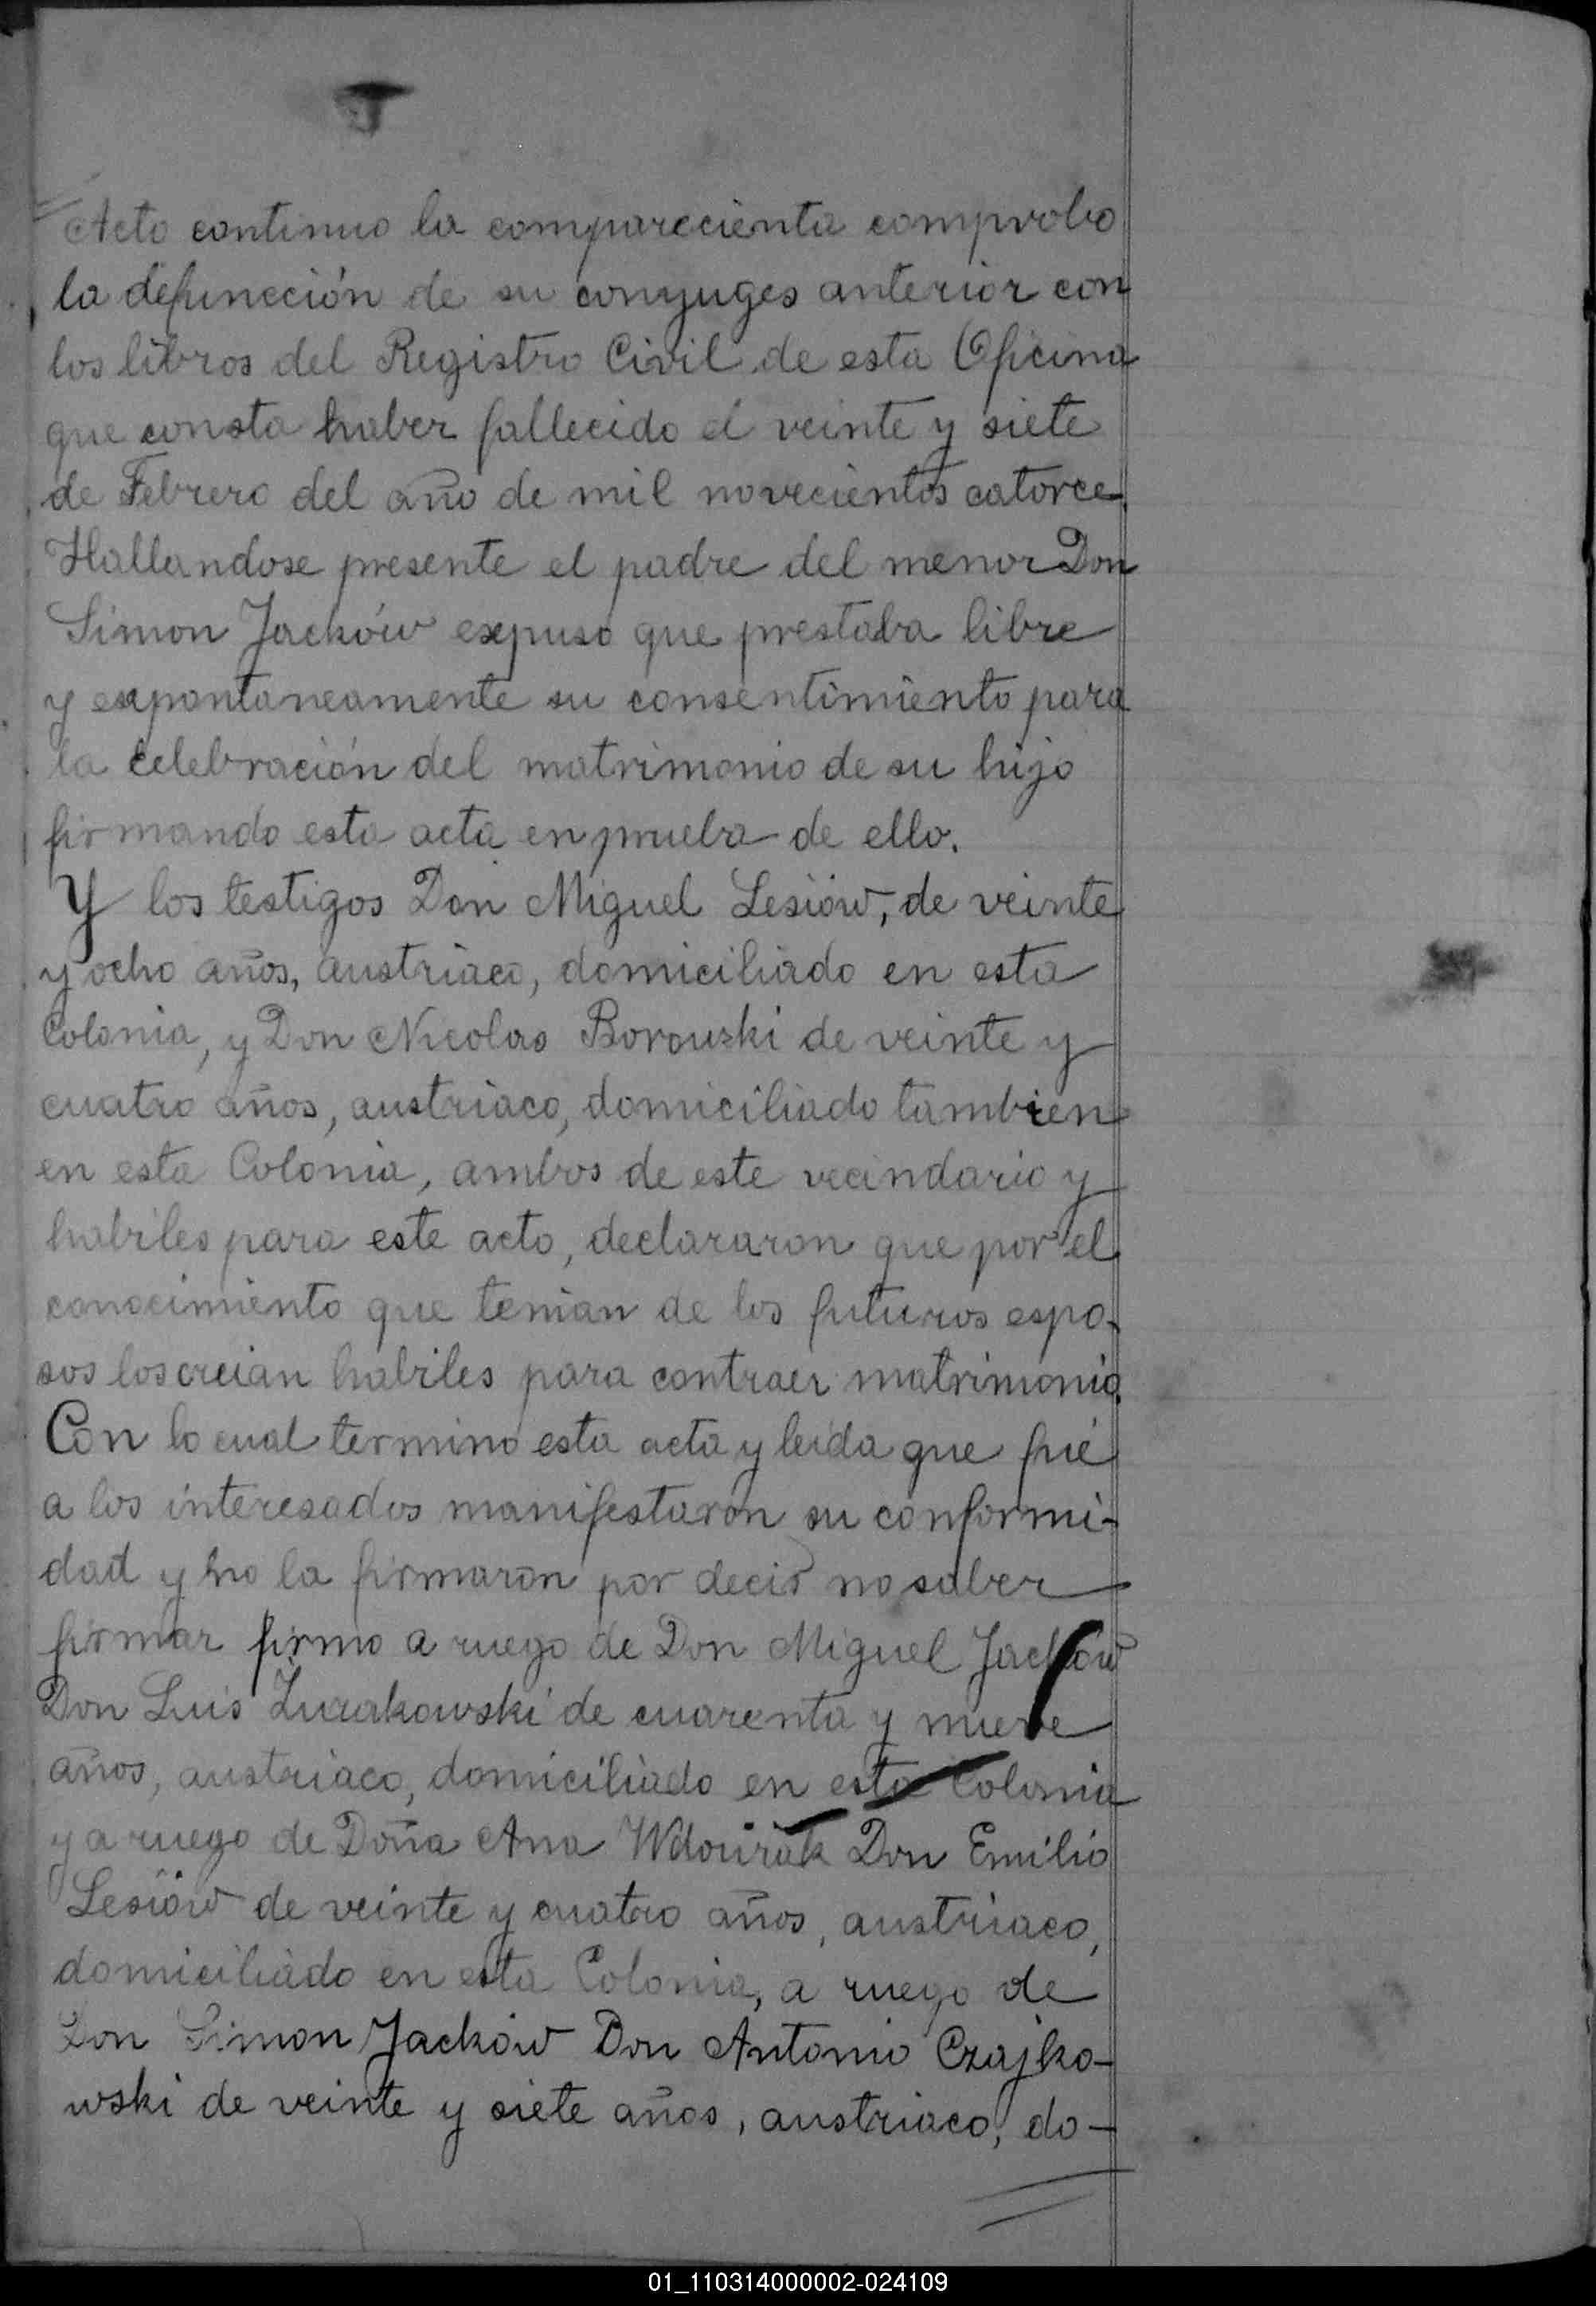 Acto continuo la comparecienta comprobo
la defuncción de su conyuges anterior con
los libros del Registro Civil de esta Oficina
que consta haber fallecido el veinte y siete
de Febrero del año de mil novecientos catorce.
Hallandose presente el padre del menor Don
Simon Jacków expuso que prestaba libre
y expontaneamente su consentimiento para
la celebración del matrimonio de su hijo
firmando esta acta en prueba de ello.
Y los testigos Don Miguel Lesiów, de veinte
y ocho años, austriaco, domiciliado en esta
Colonia, y Don Nicolas Borouski de veinte y
cuatro años, austriaco, domiciliado tambien
en esta Colonia, ambos de este vecindario y
habiles para este acto, declararon que por el
conocimiento que tenian de los futuros espo-
sos los creian habiles para contraer matrimonio.
Con lo cual termino esta acta y leida que fué
a los interesados manifestaron su conformi-
dad y no la firmaron por decir no saber
firmar firmo a ruego de Don Miguel Jacków
Don Luis Zurakowski de cuarenta y nueve
años, austriaco, domiciliado en esta Colonia
y a ruego de Doña Ana Wdourak Don Emilio
Lesiów de veinte y cuatro años, austriaco,
domiciliado en esta Colonia, a ruego de
Don Simon Jacków Don Antonio Czajko-
wski de veinte y siete años, austriaco, do-
01_110314000002-024109